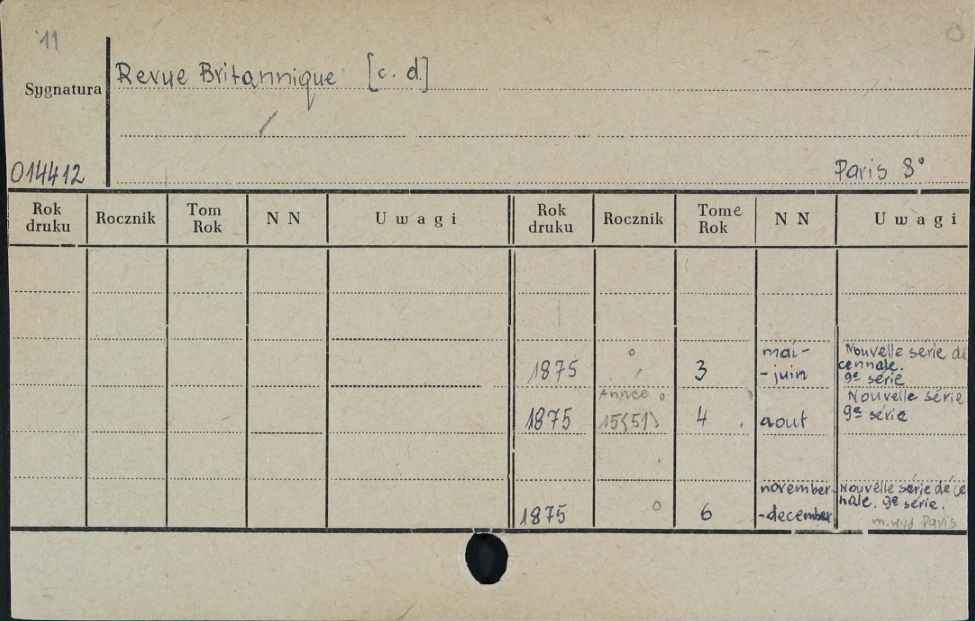 11
Revue Britannique [c. d.]
Sygnatura
014412
Paris 8°
Rok druku Rocznik Tom Rok N N U w a g i Rok druku Rocznik Tome Rok N N U w a g i
1875 3 mai-
-juin Nouvelle serie de
cennale.
9e série
1875 Année
15(51) 4 aout Nouvelle série
9e série
1875 6 november-
-december Nouvelle série déce
nale. 9e série.
m. wyd Paris